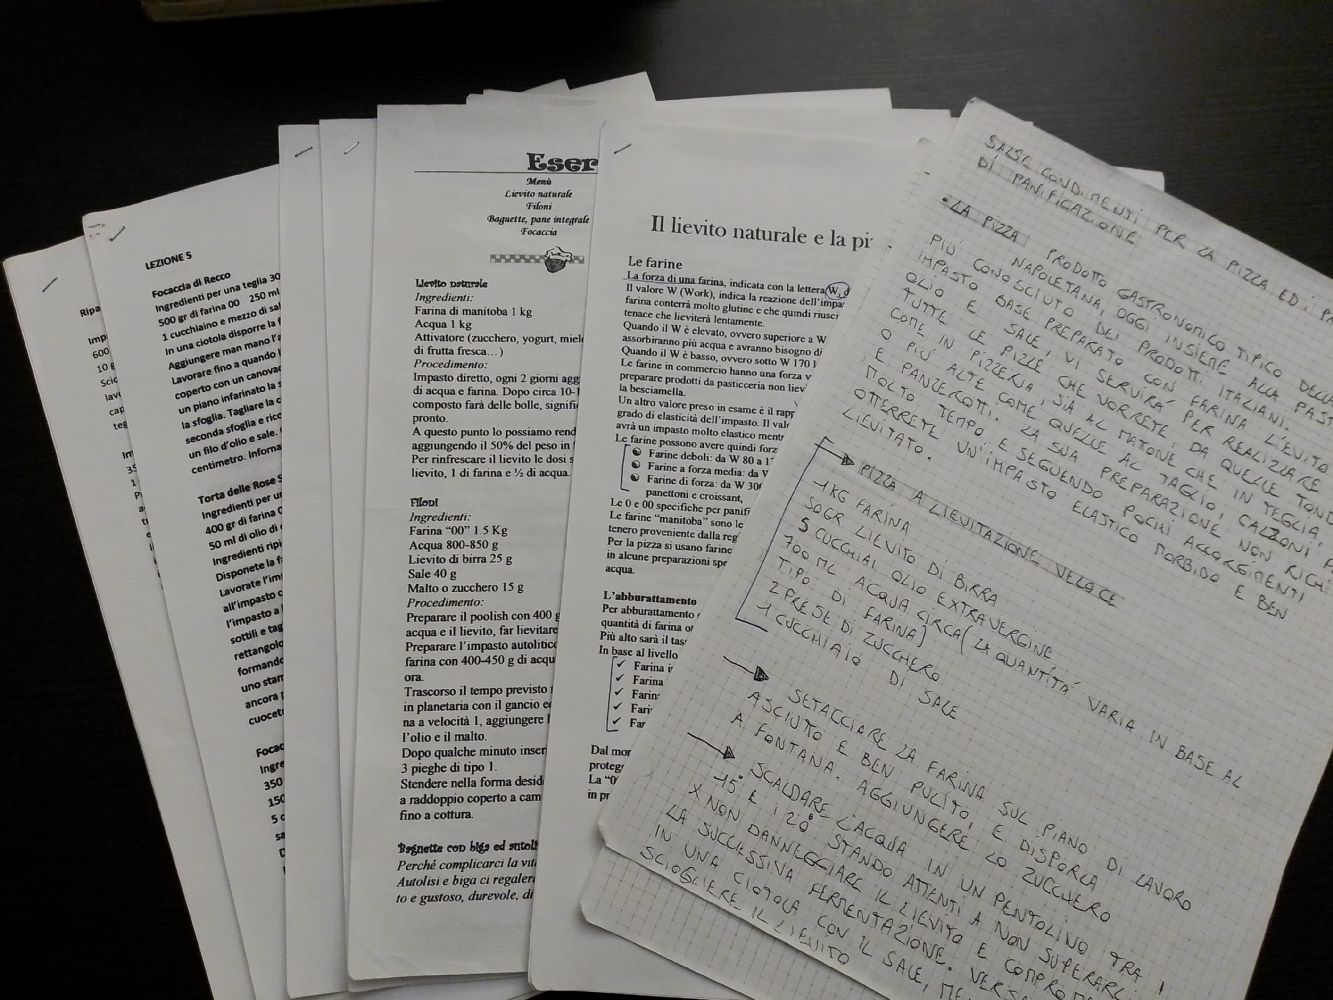 Ripa
Imp
600
10 g
Scio
lav
cap
teg
LEZIONE 5
Focaccia di Recco
Ingredienti per una teglia 30
500 gr di farina 00 250 ml
1 cucchiaino e mezzo di sal
In una ciotola disporre la f
Aggiungere man mano l'a
Lavorare fino a quando l
coperto con un canova
un piano infarinato la s
la sfoglia. Tagliare la c
seconda sfoglia e rico
un filo d'olio e sale.
centimetro. Inforna
Torta delle Rose S
Ingredienti per u
400 gr di farina 0
50 ml di olio di
Ingredienti ripi
Disponete la f
Lavorate l'im
all'impasto c
l'impasto a l
sottili e tag
rettangolo
formando
uno stam
ancora p
cuocet
Focac
Ingre
350
150
5 c
sa
Eser
Menù
Lievito naturale
Filoni
Baguette, pane integrale
Focaccia
Lievito naturale
Ingredienti:
Farina di manitoba 1 kg
Acqua 1 kg
Attivatore (zucchero, yogurt, miele
di frutta fresca…)
Procedimento:
Impasto diretto, ogni 2 giorni agg
di acqua e farina. Dopo circa 10-1
composto farà delle bolle, signifi
pronto.
A questo punto lo possiamo rend
aggiungendo il 50% del peso in f
Per rinfrescare il lievito le dosi s
lievito, 1 di farina e ½ di acqua.
Filoni
Ingredienti:
Farina "00" 1.5 Kg
Acqua 800-850 g
Lievito di birra 25 g
Sale 40 g
Malto o zucchero 15 g
Procedimento:
Preparare il poolish con 400 g
acqua e il lievito, far lievitare
Preparare l'impasto autolitico
farina con 400-450 g di acqu
ora.
Trascorso il tempo previsto
in planetaria con il gancio e
na a velocità 1, aggiungere
l'olio e il malto.
Dopo qualche minuto inser
3 pieghe di tipo 1.
Stendere nella forma desid
a raddoppio coperto a cam
fino a cottura.
Bagnette con biga ed autoli
Perché complicarci la vita
Autolisi e biga ci regaler
to e gustoso, durevole, di
Il lievito naturale e la pi
Le farine
La forza di una farina, indicata con la lettera W, è
Il valore W (Work), indica la reazione dell'impa
farina conterrà molto glutine e che quindi riusci
tenace che lieviterà lentamente.
Quando il W è elevato, ovvero superiore a W
assorbiranno più acqua e avranno bisogno di
Quando il W è basso, ovvero sotto W 170 l
Le farine in commercio hanno una forza v
preparare prodotti da pasticceria non liev
la besciamella.
Un altro valore preso in esame è il rapp
grado di elasticità dell'impasto. Il valo
avrà un impasto molto elastico mentr
Le farine possono avere quindi forz
Farine deboli: da W 80 a 1
Farine a forza media: da W
Farine di forza: da W 300
panettoni e croissant,
Le 0 e 00 specifiche per panifi
Le farine "manitoba" sono le
tenero proveniente dalla regi
Per la pizza si usano farine
in alcune preparazioni spe
acqua.
L'abburattamento
Per abburattamento
quantità di farina ot
Più alto sarà il tass
In base al livello
Farina i
Farina
Farin
Fari
Far
Dal mor
proteg
La "0
in pr
SALSE CONDIMENTI PER LA PIZZA ED I PR
DI PANIFICAZIONE
• LA PIZZA PRODOTTO GASTRONOMICO TIPICO DELLA
NAPOLETANA, OGGI INSIEME ALLA PAST
PIÙ CONOSCIUTO DEI PRODOTTI ITALIANI.
IMPASTO BASE PREPARATO CON FARINA L'EVITO
OLIO E SALE, VI SERVIRÀ PER REALIZZARE
TUTTE LE PIZZE CHE VORRETE, DA QUELLE TOND
COME IN PIZZERIA, SIA AL MATONE CHE IN TEGLIA,
O PIÙ ALTE COME QUELLE AL TAGLIO, CALZONI
E PANZEROTTI. LA SUA PREPARAZIONE NON RICH
MOLTO TEMPO E SEGUENDO POCHI ACCORGIMENTI
OTTERRETE UN'IMPASTO ELASTICO MORBIDO E BEN
LIEVITATO.
PIZZA A LIEVITAZIONE VELOCE
1 KG FARINA
50GR LIEVITO DI BIRRA
5 CUCCHIAI OLIO EXTRAVERGINE
700 ML ACQUA CIRCA (LA QUANTITÀ VARIA IN BASE AL
TIPO DI FARINA)
2 PRESE DI ZUCCHERO
1 CUCCHIAIO DI SALE
SETACCIARE LA FARINA SUL PIANO DI LAVORO
ASCIUTTO E BEN PULITO, E DISPORLA
A FONTANA. AGGIUNGERE LO ZUCCHERO
SCALDARE L'ACQUA IN UN PENTOLINO TRA I
15° E I 20° STANDO ATTENTI A NON SUPERARLI
X NON DANNEGGIARE IL LIEVITO E COMPROM
LA SUCCESSIVA FERMENTAZIONE. VERSA
IN UNA CIOTOLA CON IL SALE, ME
SCIOGLIERE IL LIEVITO